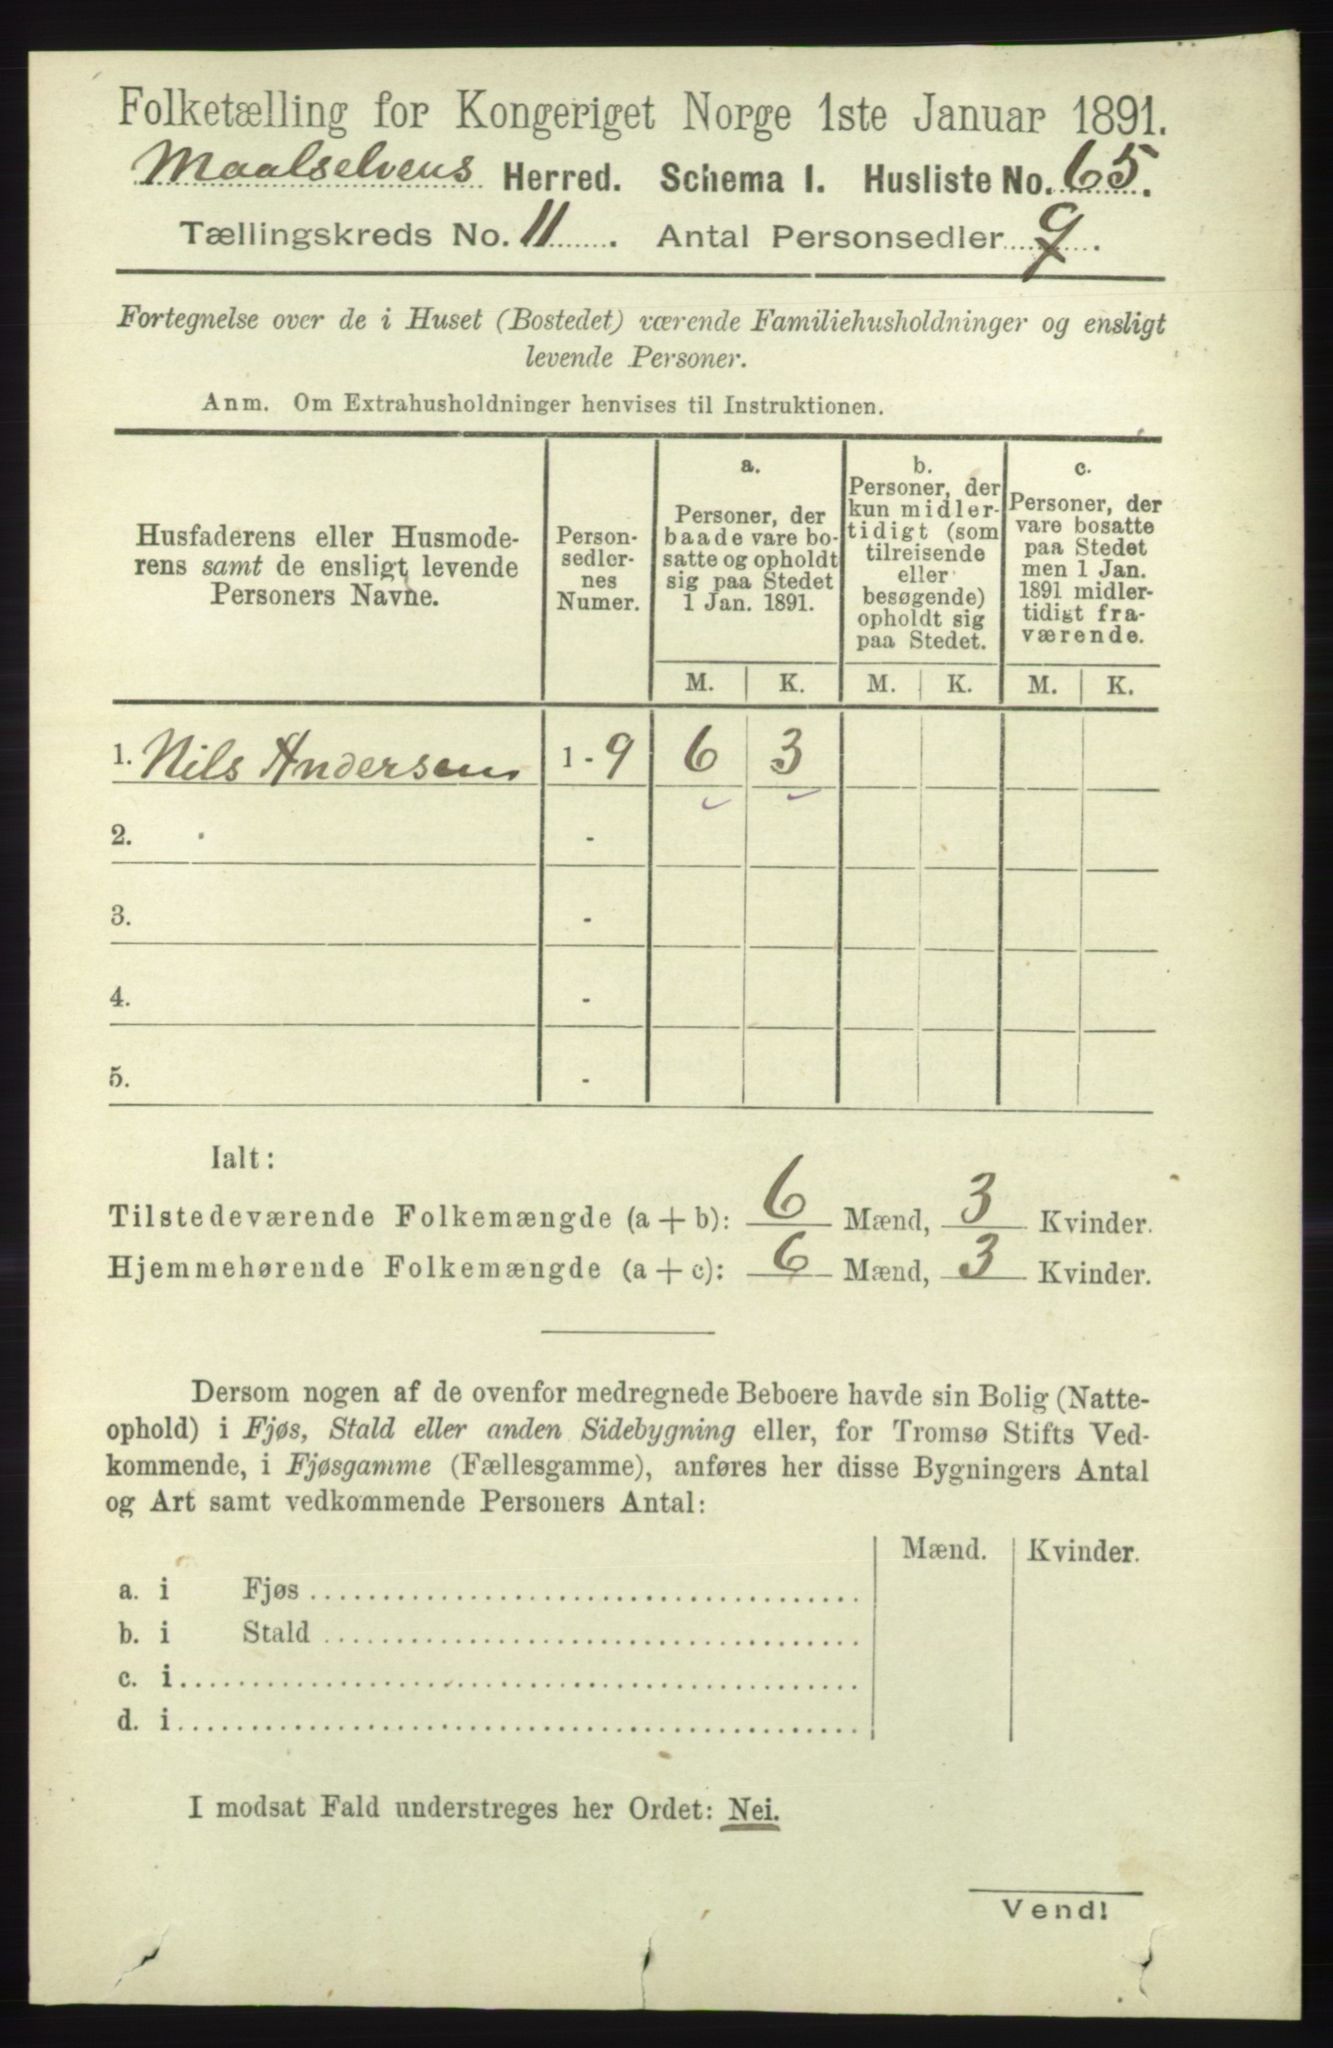 Folketælling for Kongeriget Norge 1ste Januar 1891.
Maalselvens Herred. Schema I. Husliste No. 65.
Tællingskreds No. 11. Antal Personsedler 9.
Fortegnelse over de i Huset (Bostedet) værende Familiehusholdninger og ensligt
levende Personer.
Anm. Om Extrahusholdninger henvises til Instruktionen.
Husfaderens eller Husmode-
rens samt de ensligt levende
Personers Navne.
Person-
sedler-
nes
Numer.
a.
Personer, der
baade vare bo-
satte og opholdt
sig paa Stedet
1 Jan. 1891.
b.
Personer, der
kun midler-
tidigt (som
tilreisende
eller
besøgende)
opholdt sig
paa Stedet.
c.
Personer, der
vare bosatte
paa Stedet
men 1 Jan.
1891 midler-
tidigt fra-
værende.
M. K. M. K. M. K.
1. Nils Andersen 1 - 9 6 3
2. -
3. -
4. -
5. -
Ialt:
Tilstedeværende Folkemængde (a + b): 6 Mænd, 3 Kvinder.
Hjemmehørende Folkemængde (a + c): 6 Mænd, 3 Kvinder.
Dersom nogen af de ovenfor medregnede Beboere havde sin Bolig (Natte-
ophold) i Fjøs, Stald eller anden Sidebygning eller, for Tromsø Stifts Ved-
kommende, i Fjøsgamme (Fællesgamme), anføres her disse Bygningers Antal
og Art samt vedkommende Personers Antal:
Mænd. Kvinder.
a. i Fjøs
b. i Stald
c. i
d. i
I modsat Fald understreges her Ordet: Nei.
Vend!